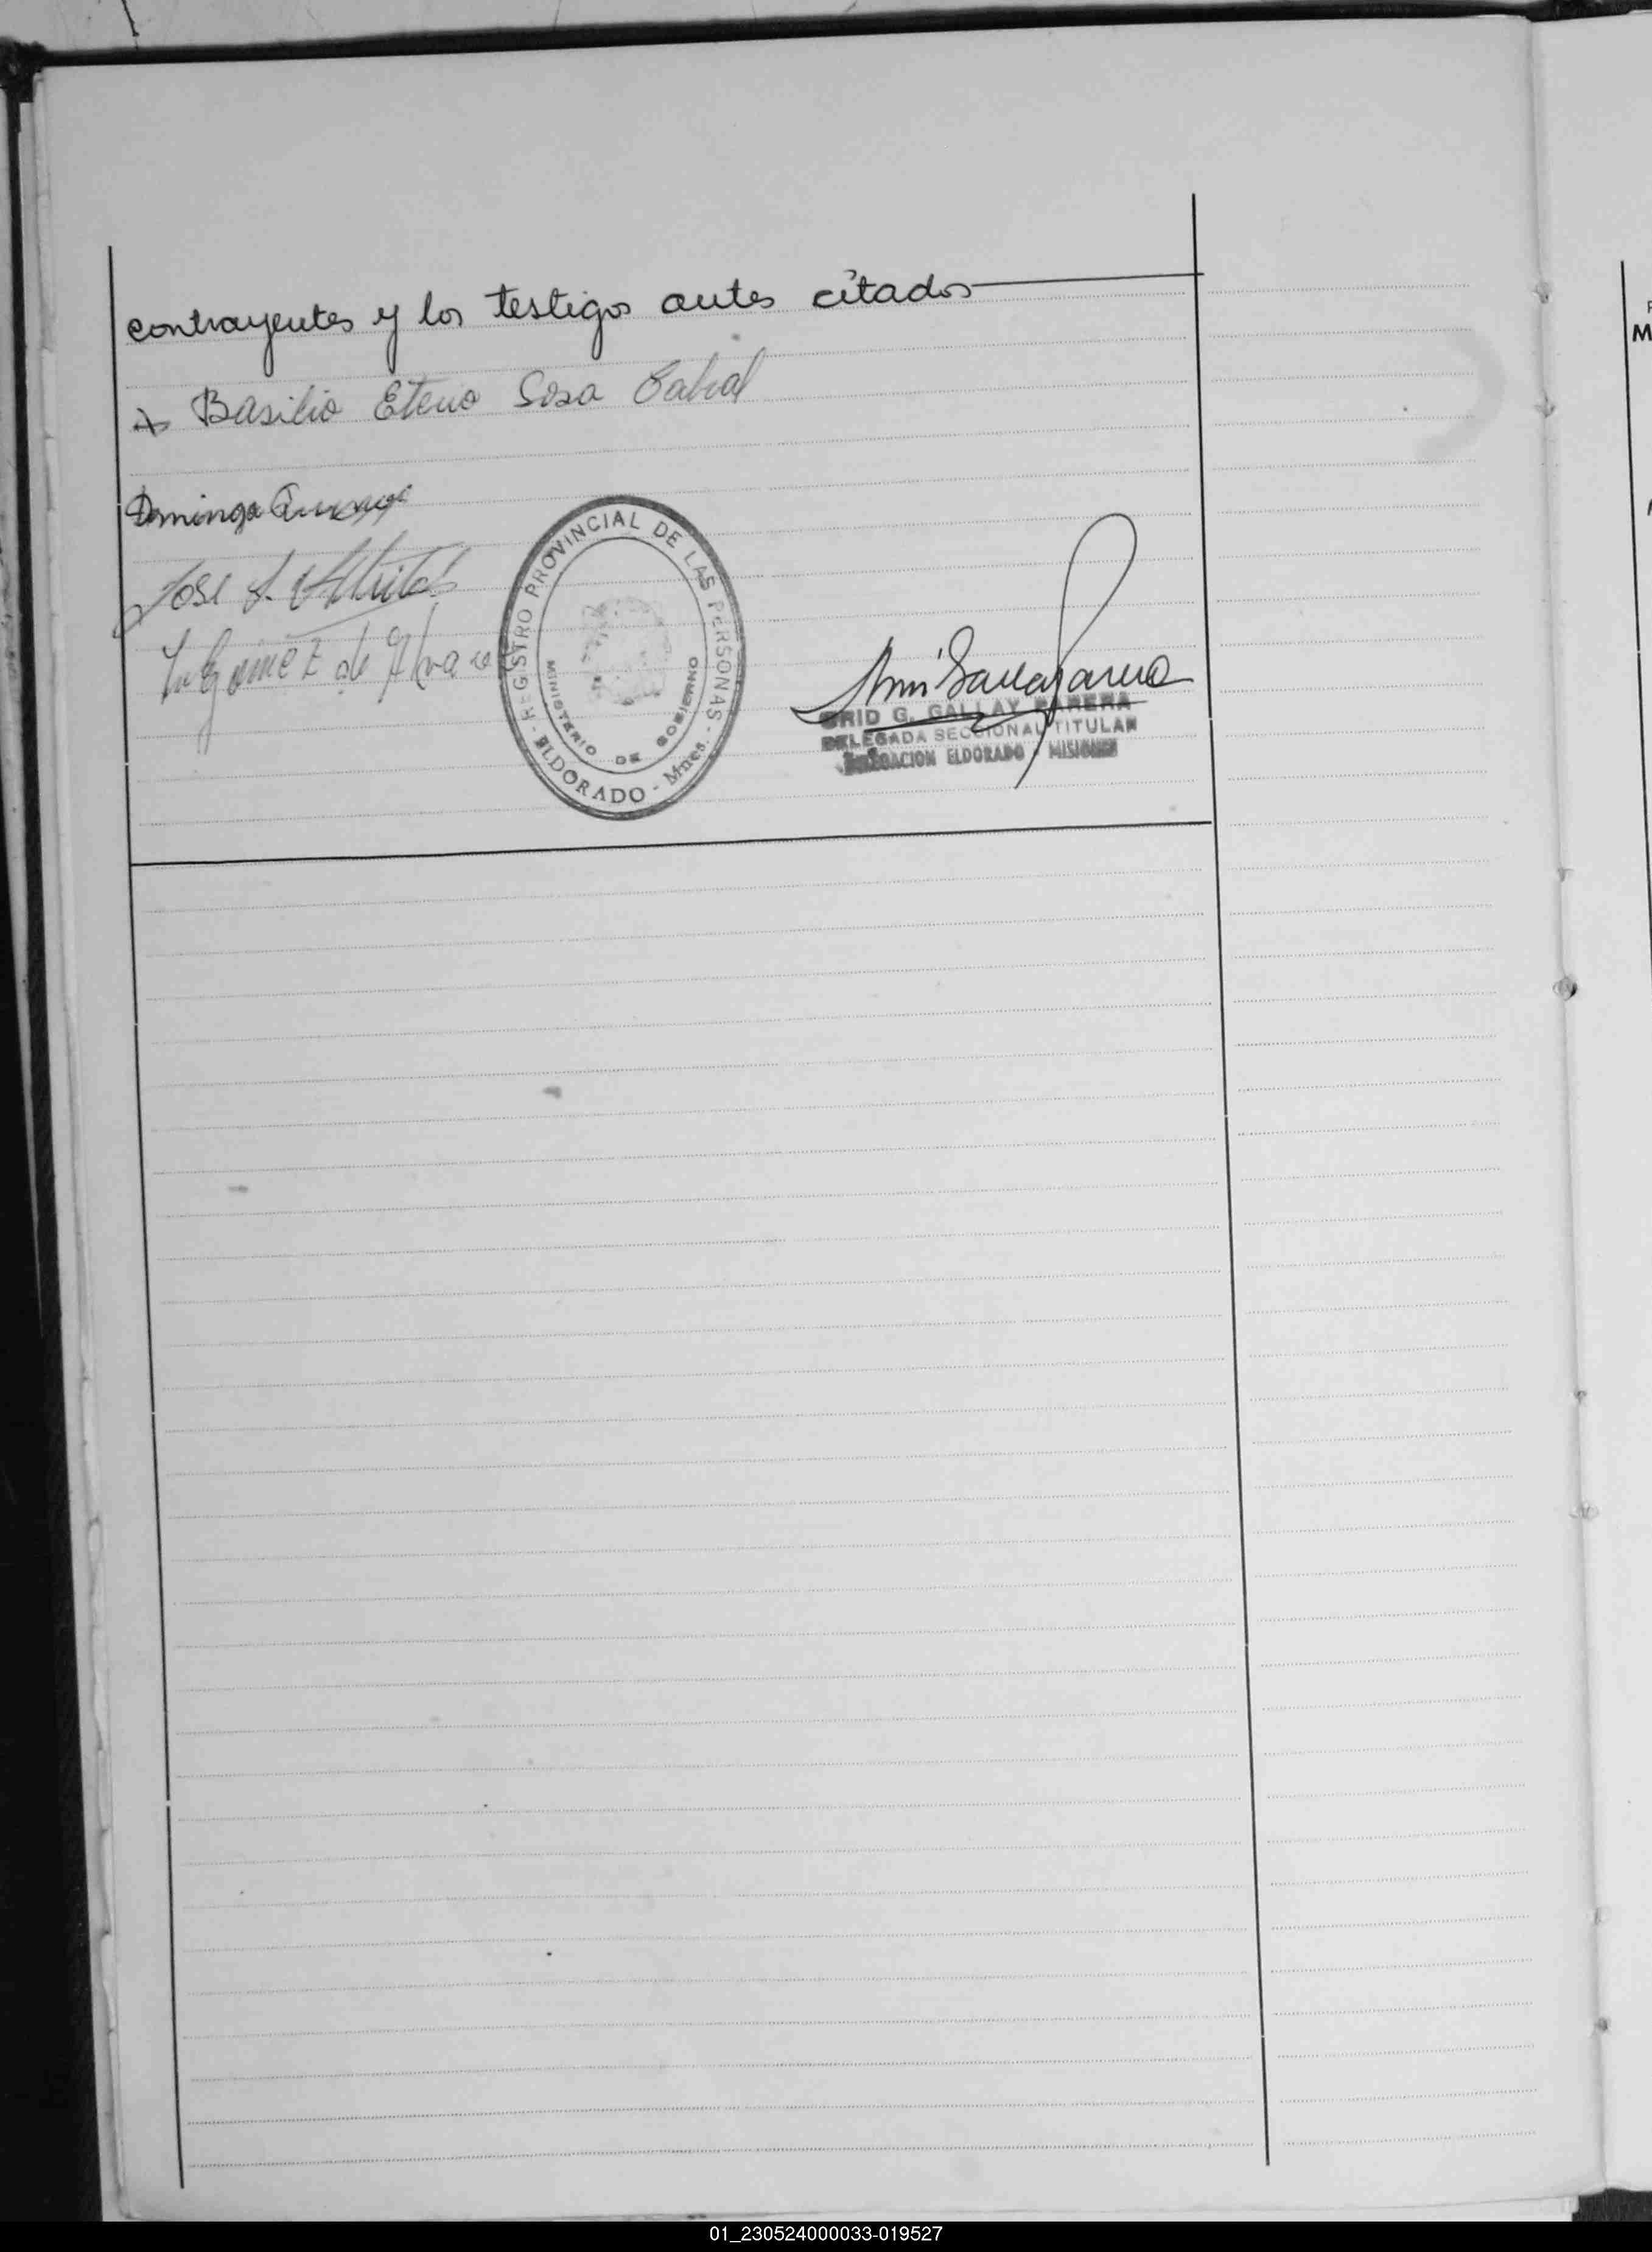 contrayentes y los testigos antes citados
Basilio Eterio Sosa Cabral
Dominga
Jose
de
- REGISTRO PROVINCIAL DE LAS PERSONAS -
MINISTERIO DE GOBIERNO
ELDORADO - Mnes.
G. GALLAY PARERA
DELEGADA SECCIONAL TITULAR
DELEGACION ELDORADO - MISIONES
M
01_230524000033-019527